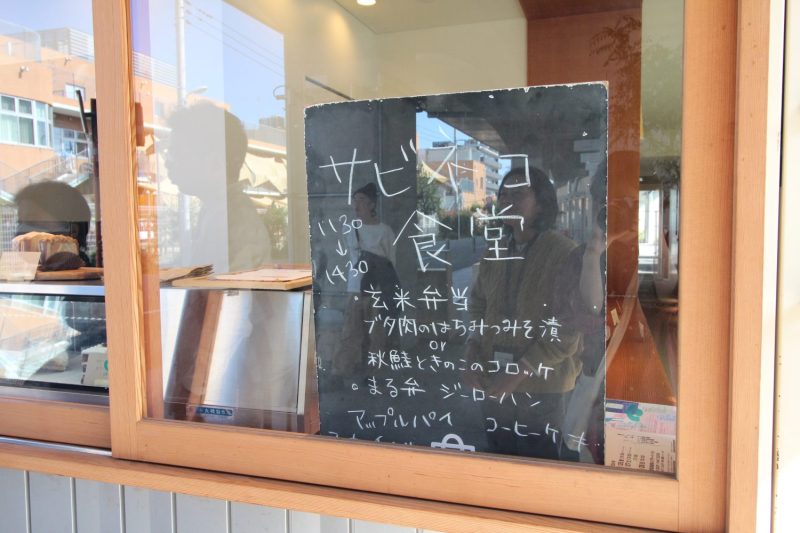 サビヌコ
食堂
11:30
↓
14:30
・玄米弁当
ブタ肉のはちみつみそ漬
or
秋鮭ときのこのコロッケ
・まる弁 ジーローハン
アップルパイ コーヒーケーキ